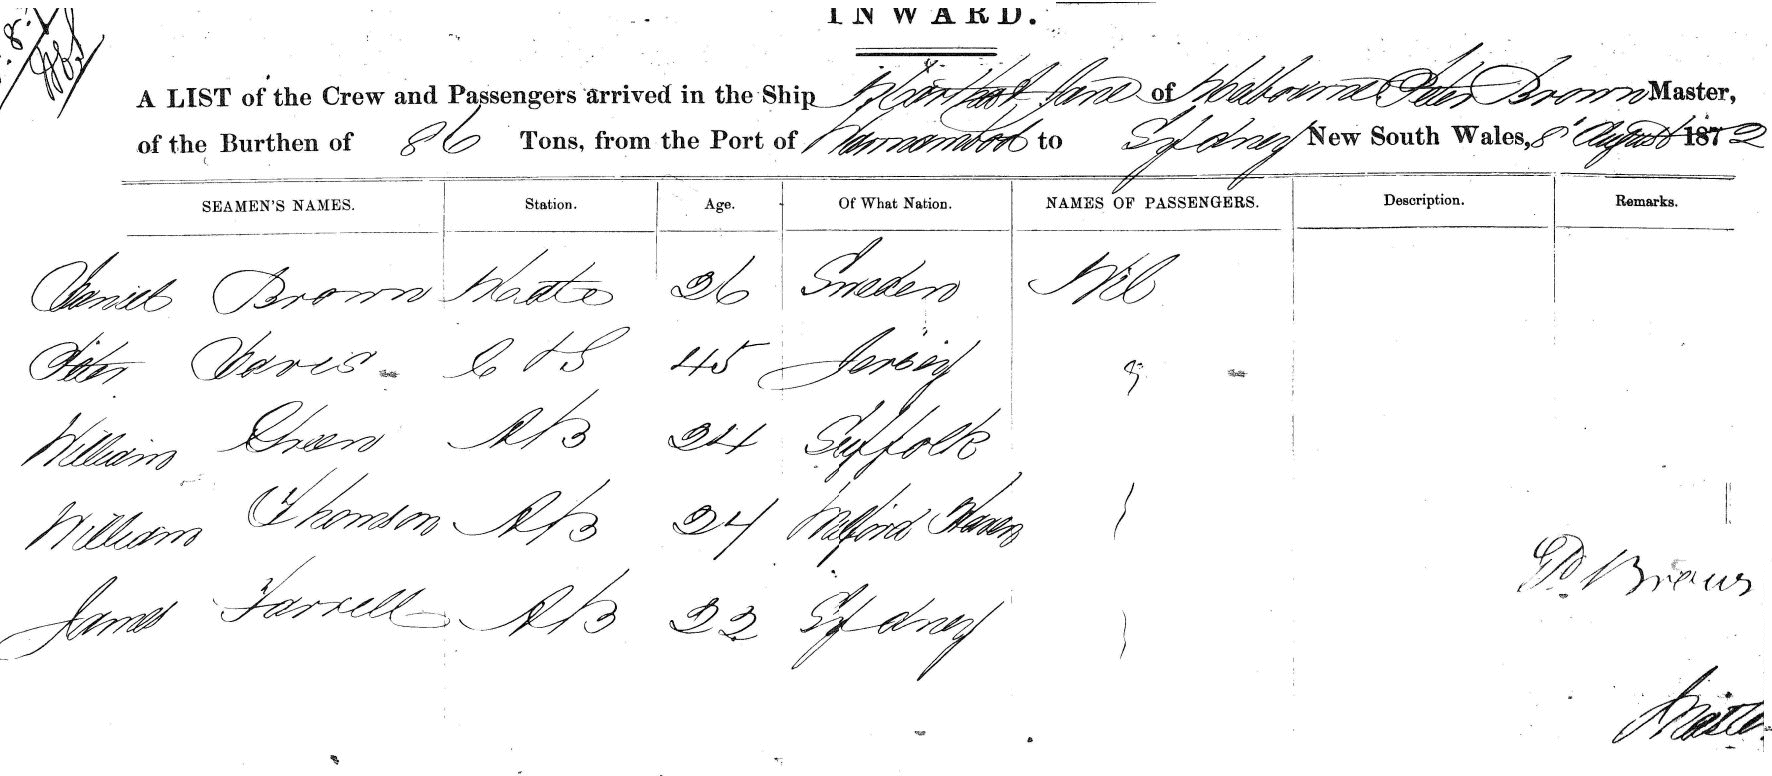 INWARD.
A LIST of the Crew and Passengers arrived in the Ship Jane of Melbourne Peter Brown Master,
of the Burthen of 86 Tons, from the Port of to Sydney New South Wales, 8 August 1872
SEAMEN'S NAMES. Station. Age. Of What Nation. NAMES OF PASSENGERS. Description. Remarks.
Daniel Brown Mate 26 Sweden Nil
Peter Davis C & S 45 Jersey
William Green AB 24 Suffolk
William Thomson AB 24 Milford Haven
James Farrell AB 22 Sydney
P. Brown
Master